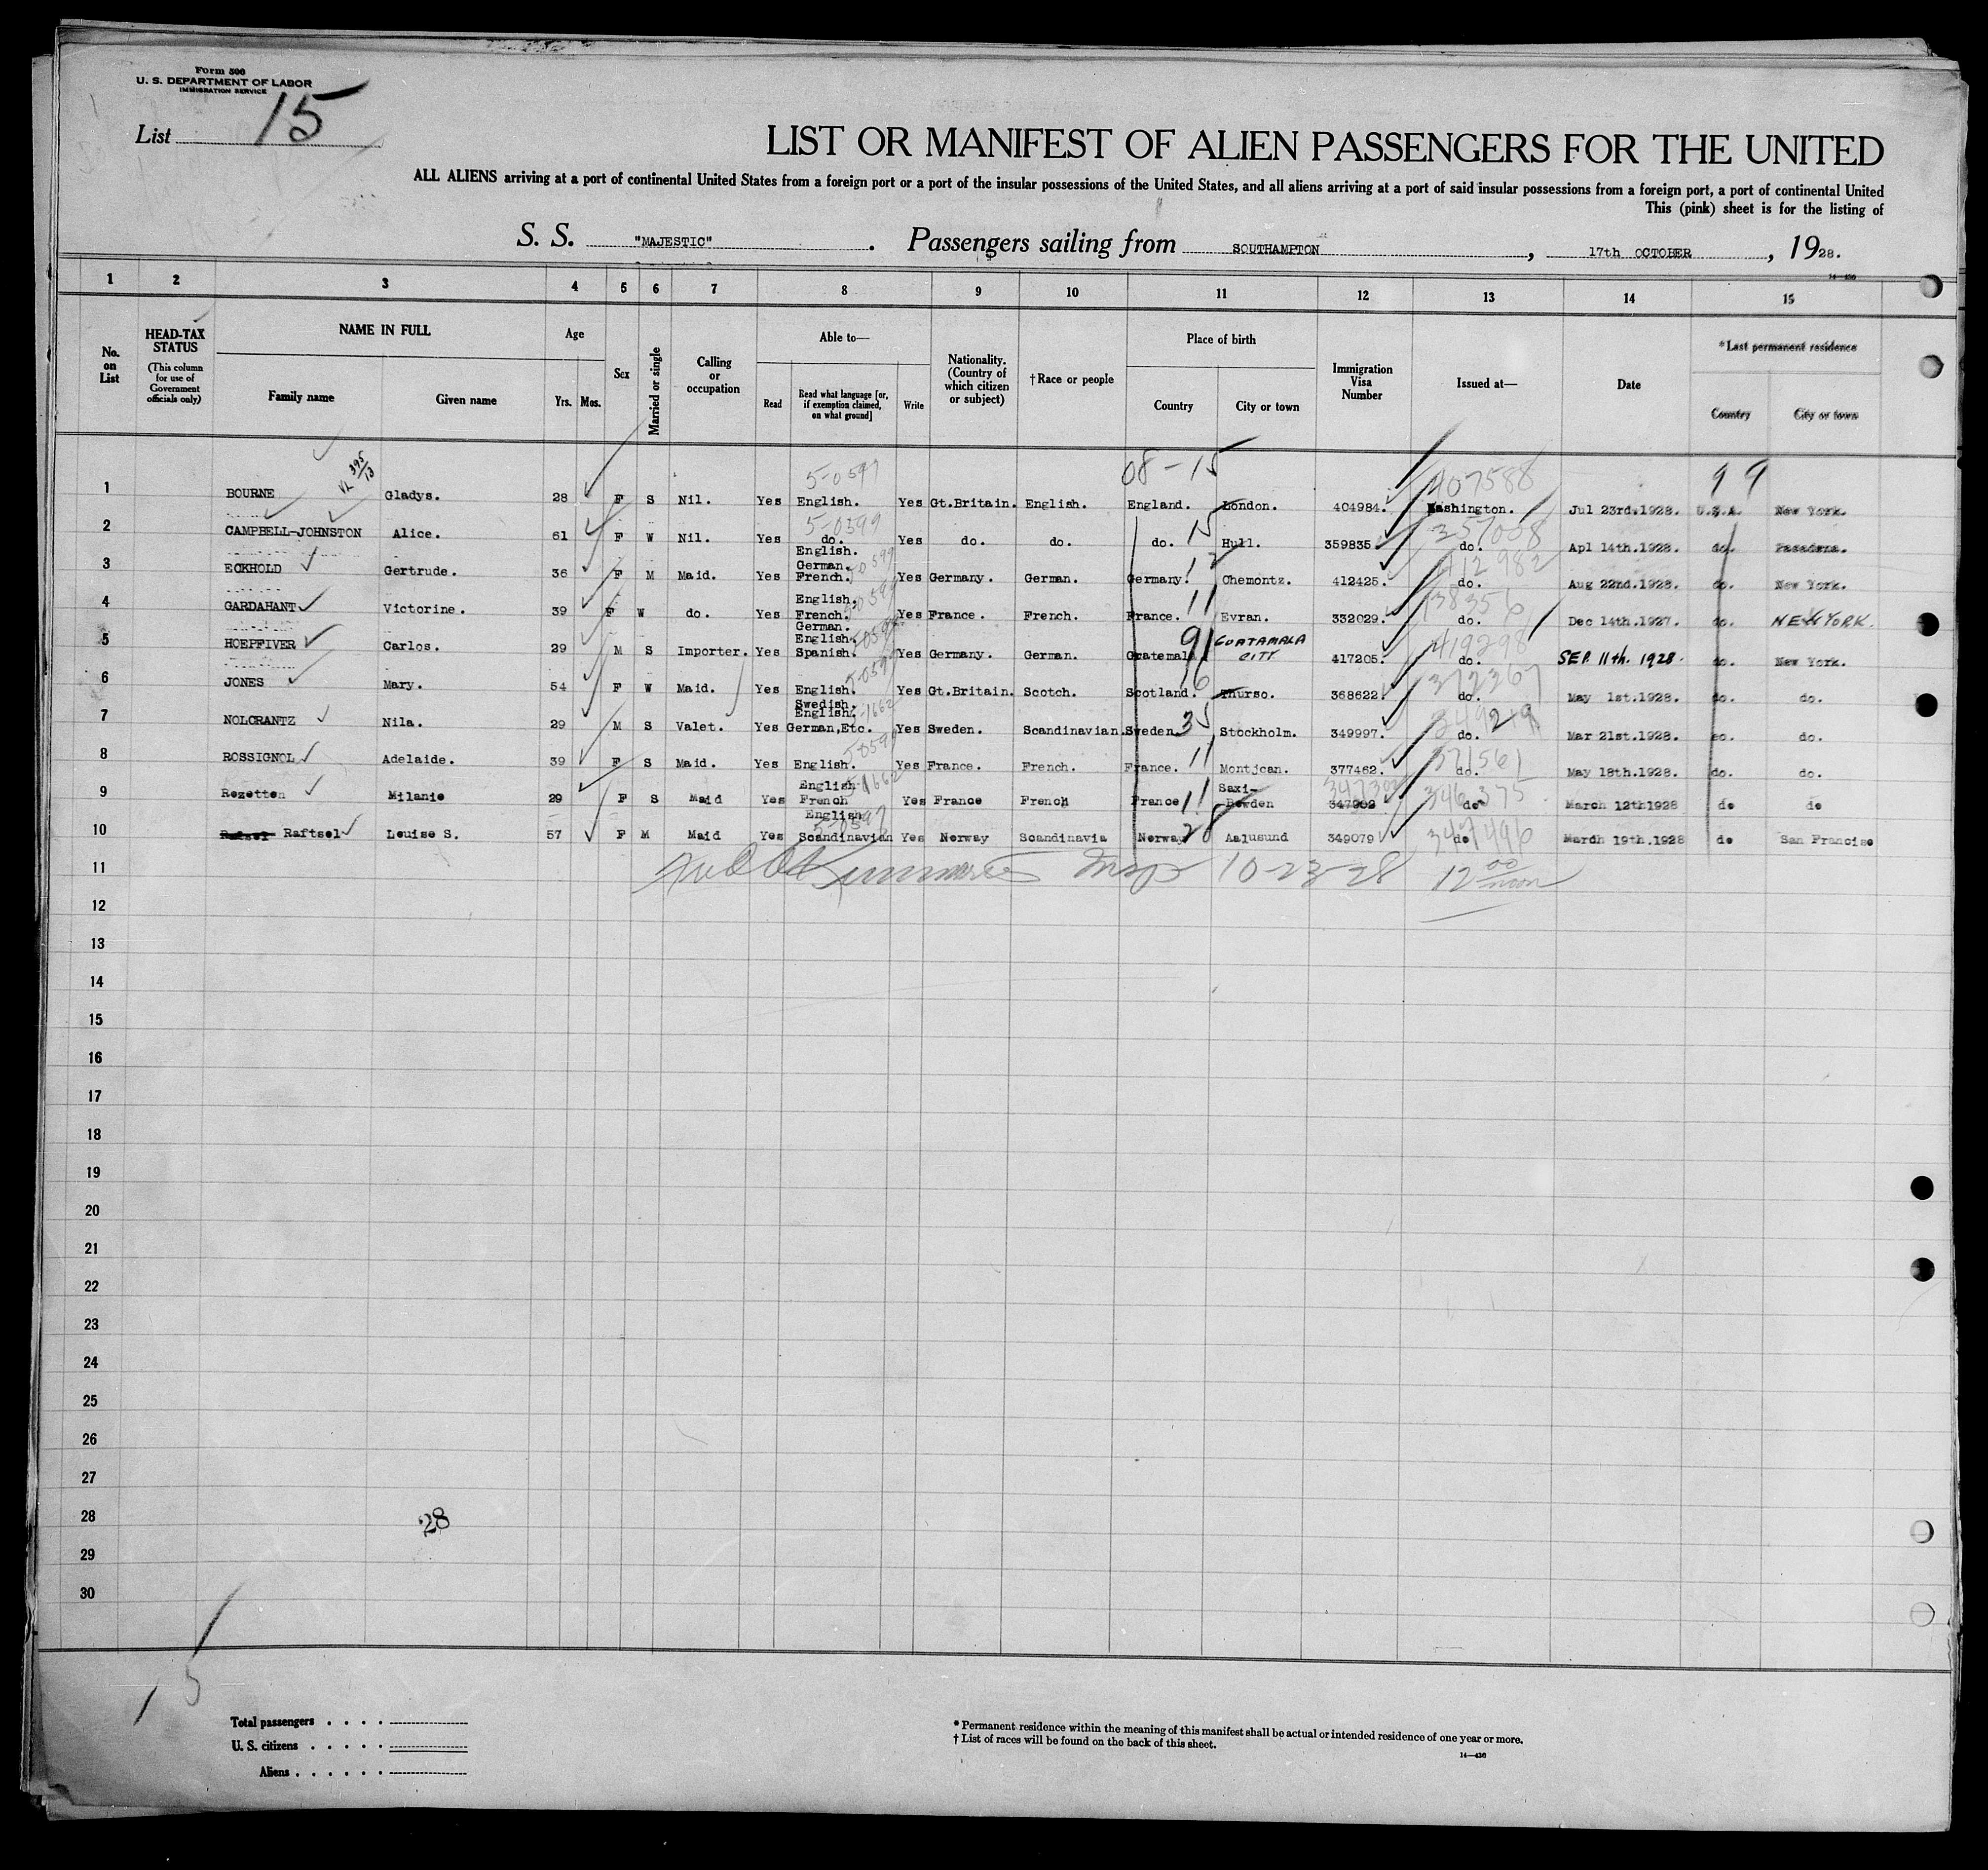 Form 500
U. S. DEPARTMENT OF LABOR
IMMIGRATION SERVICE
List 15
LIST OR MANIFEST OF ALIEN PASSENGERS FOR THE UNITED
ALL ALIENS arriving at a port of continental United States from a foreign port or a port of the insular possessions of the United States, and all aliens arriving at a port of said insular possessions from a foreign port, a port of continental United
This (pink) sheet is for the listing of
S. S. "MAJESTIC". Passengers sailing from SOUTHAMPTON, 17th OCTOBER, 1928.
14—436
1 2 3 4 5 6 7 8 9 10 11 12 13 14 15
No. on List
HEAD-TAX STATUS (This column for use of Government officials only)
NAME IN FULL Family name Given name
Age Yrs. Mos.
Sex
Married or single
Calling or occupation
Able to— Read Read what language [or, if exemption claimed, on what ground] Write
Nationality. (Country of which citizen or subject)
† Race or people
Place of birth Country City or town
Immigration Visa Number
Issued at—
Date
*Last permanent residence Country City or town
395/13
5-0599 08-15 407588 9 9
1 BOURNE Gladys. 28 F S Nil. Yes English. Yes Gt.Britain. English. England. London. 404984. Washington. Jul 23rd.1928. U.S.A. New York.
5-0399 15 357058
2 CAMPBELL-JOHNSTON Alice. 61 F W Nil. Yes do. Yes do. do. do. Hull. 359835. do. Apl 14th.1928. do. Pasadena.
English.
German. 412982
3 ECKHOLD Gertrude. 36 F M Maid. Yes French. Yes Germany. German. Germany. Chemontz. 412425. do. Aug 22nd.1928. do. New York.
English. 11 138356
4 GARDAHANT Victorine. 39 F W do. Yes French. Yes France. French. France. Evran. 332029. do. Dec 14th.1927. do. NEW YORK.
German.
English. 91 GUATAMALA CITY 419298
5 HOEPFIVER Carlos. 29 M S Importer. Yes Spanish. Yes Germany. German. Gratemala 417205. do. SEP. 11th. 1928. do. New York.
6 372367
6 JONES Mary. 54 F W Maid. Yes English. Yes Gt.Britain. Scotch. Scotland. Thurso. 368622. do. May 1st.1928. do. do.
Swedish.
English. 35
7 NOLCRANTZ Nila. 29 M S Valet. Yes German,Etc. Yes Sweden. Scandinavian. Sweden. Stockholm. 349997. do. Mar 21st.1928. do. do.
11 371561
8 ROSSIGNOL Adelaide. 39 F S Maid. Yes English. Yes France. French. France. Montjean. 377462. do. May 18th.1928. do. do.
English 11 Saxi- 346375
9 Rezetten Milanie 29 F S Maid Yes French Yes France French France Bowden 347902 do March 12th1928 do do
English 5-0597 28 347496
10 Raftsel Louise S. 57 F M Maid Yes Scandinavian Yes Norway Scandinavia Norway Aalusund 349079 do March 19th.1928 do San Francisc
11 Insp 10-23-28 12 00 noon
12
13
14
15
16
17
18
19
20
21
22
23
24
25
26
27
28 28
29
30
15
Total passengers . . . .
U. S. citizens . . . . .
Aliens . . . . . .
* Permanent residence within the meaning of this manifest shall be actual or intended residence of one year or more.
† List of races will be found on the back of this sheet.
14—436